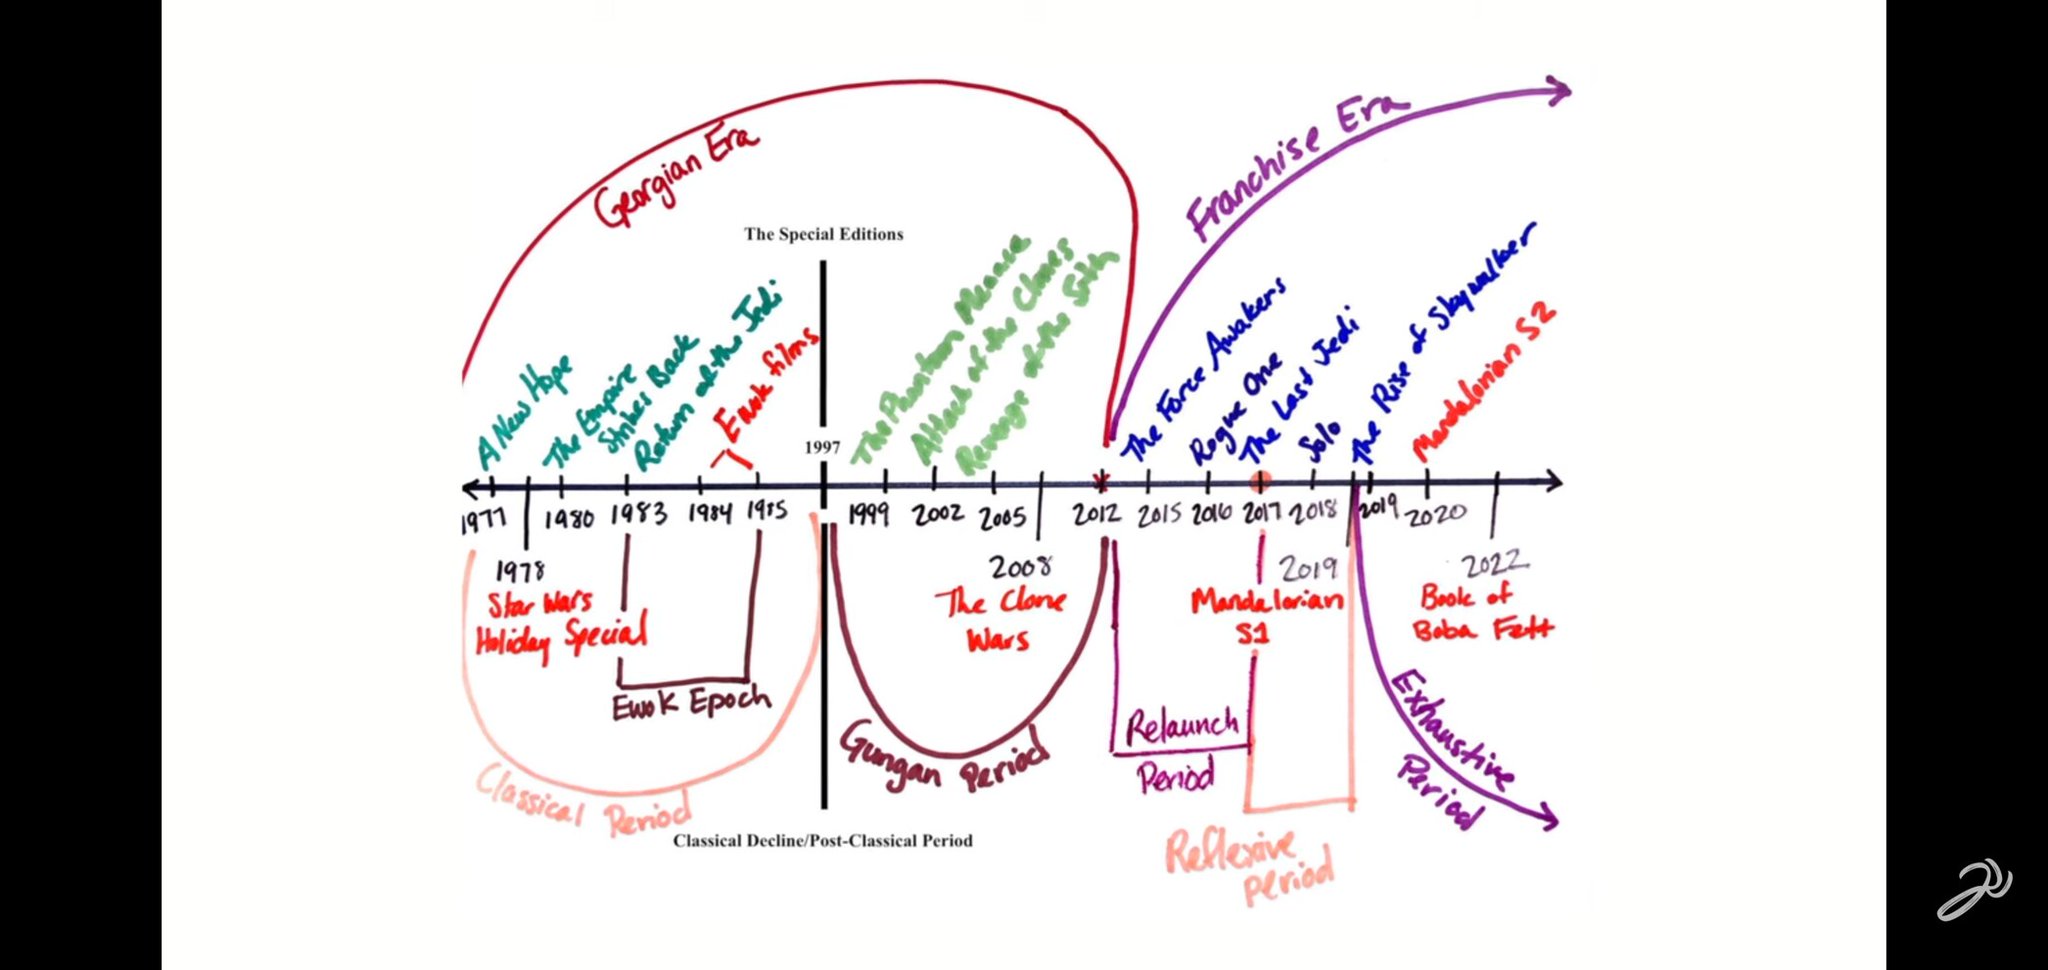 Georgian Era
Franchise Era
The Special Editions
A New Hope
The Empire
Strikes Back
Return of the Jedi
Ewok films
The Phantom Menace
Attack of the Clones
Revenge of the Sith
The Force Awakens
Rogue One
The Last Jedi
Solo
The Rise of Skywalker
Mandalorian S2
1997
1977
1980
1983
1984
1985
1999
2002
2005
2012
2015
2016
2017
2018
2019
2020
1978
Star Wars
Holiday Special
2008
The Clone
Wars
2019
Mandalorian
S1
2022
Book of
Boba Fett
Ewok Epoch
Classical Period
Gungan Period
Relaunch
Period
Exhaustive
Period
Classical Decline/Post-Classical Period
Reflexive
Period